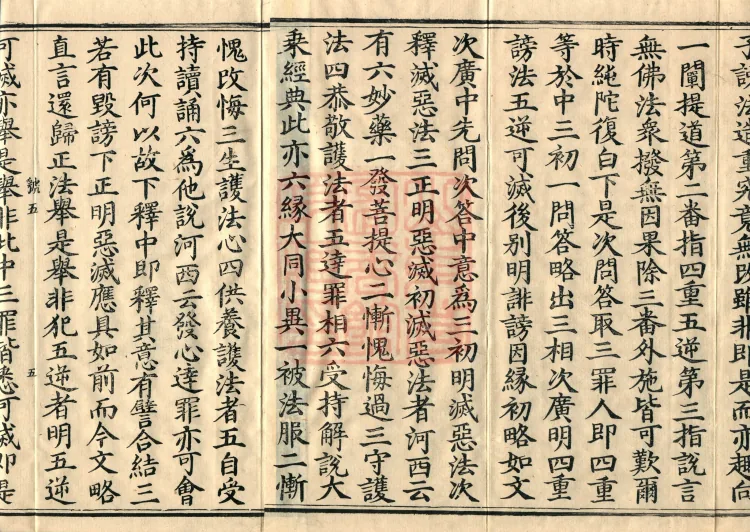 子謗法造重究竟無改雖非即是而亦趣向
一闡提道第二番指四重五逆第三指說言
無佛法衆撥無因果除三番外施皆可歎爾
時純陀復白下是次問答取三罪人即四重
等於中三初一問答略出三相次廣明四重
謗法五逆可滅後別明誹謗因緣初略如文
次廣中先問次答中意爲三初明滅惡法次
釋滅惡法三正明惡滅初滅惡法者河西云
有六妙藥一發菩提心二慚愧悔過三守護
法四恭敬護法者五達罪相六受持解說大
乘經典此亦六緣大同小異一被法服二慚
愧改悔三生護法心四供養護法者五自受
持讀誦六爲他說河西云發心達罪亦可會
此次何以故下釋中即釋其意有譬合結三
若有毀謗下正明惡滅應具如前而今文略
直言還歸正法舉是舉非犯五逆者明五逆
號五
五
可滅亦舉是舉非此中三罪皆悉可滅即是